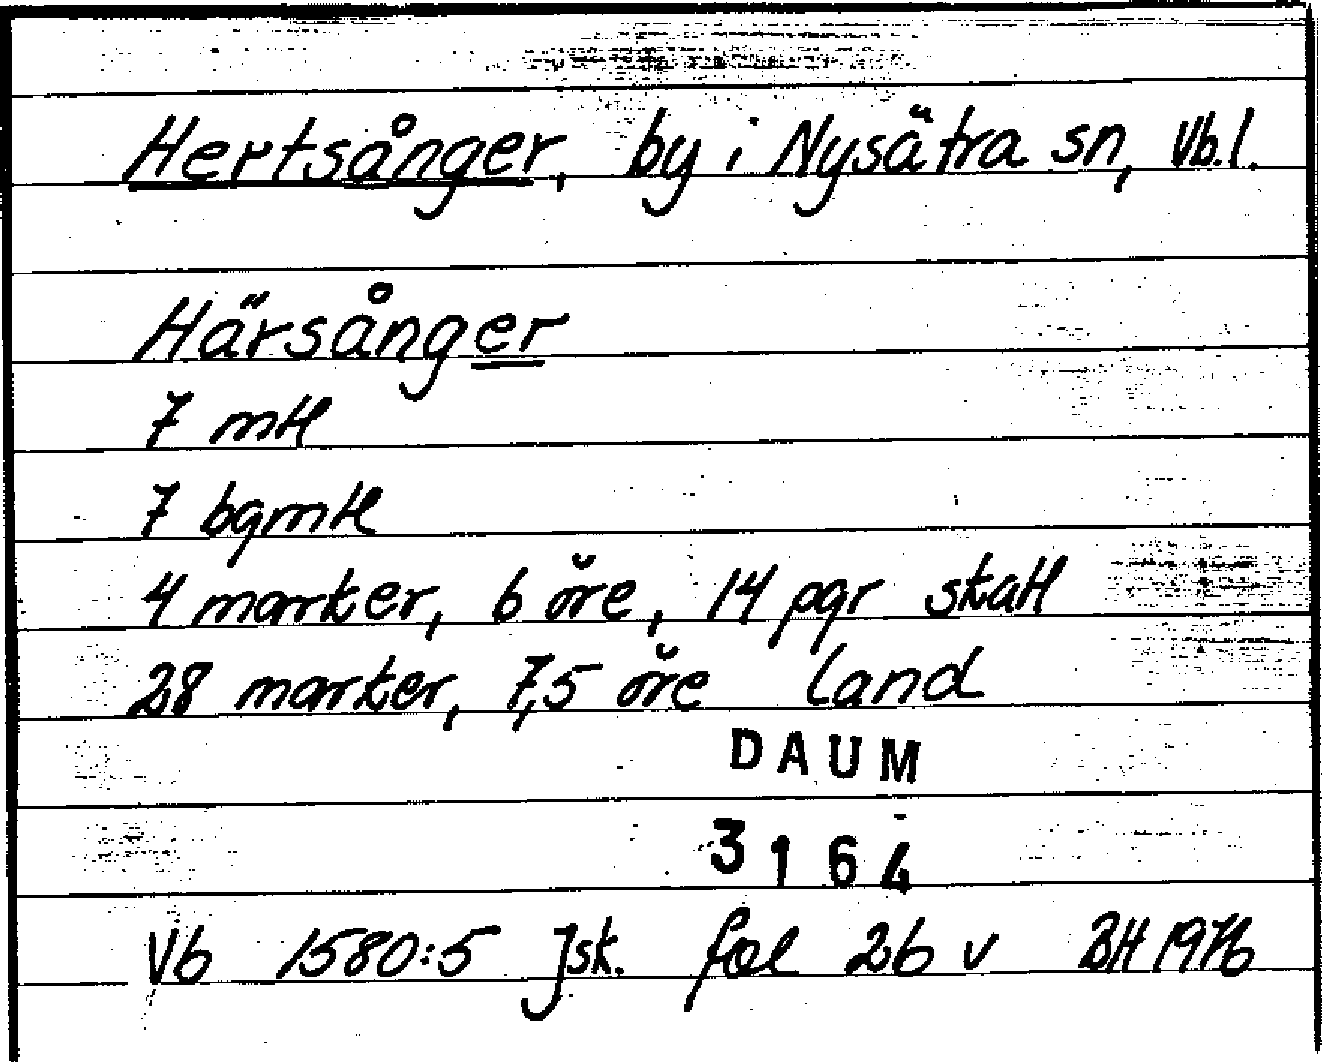 Hertsånger, by i Nysätra sn, Vb.l.
Härsånger
7 mtl
7 bgmtl
4 marker, 6 öre, 14 pgr skatt
28 marker, 7,5 öre land
DAUM
3164
Vb 1580:5 Jsk. fol 26 v BH 1976